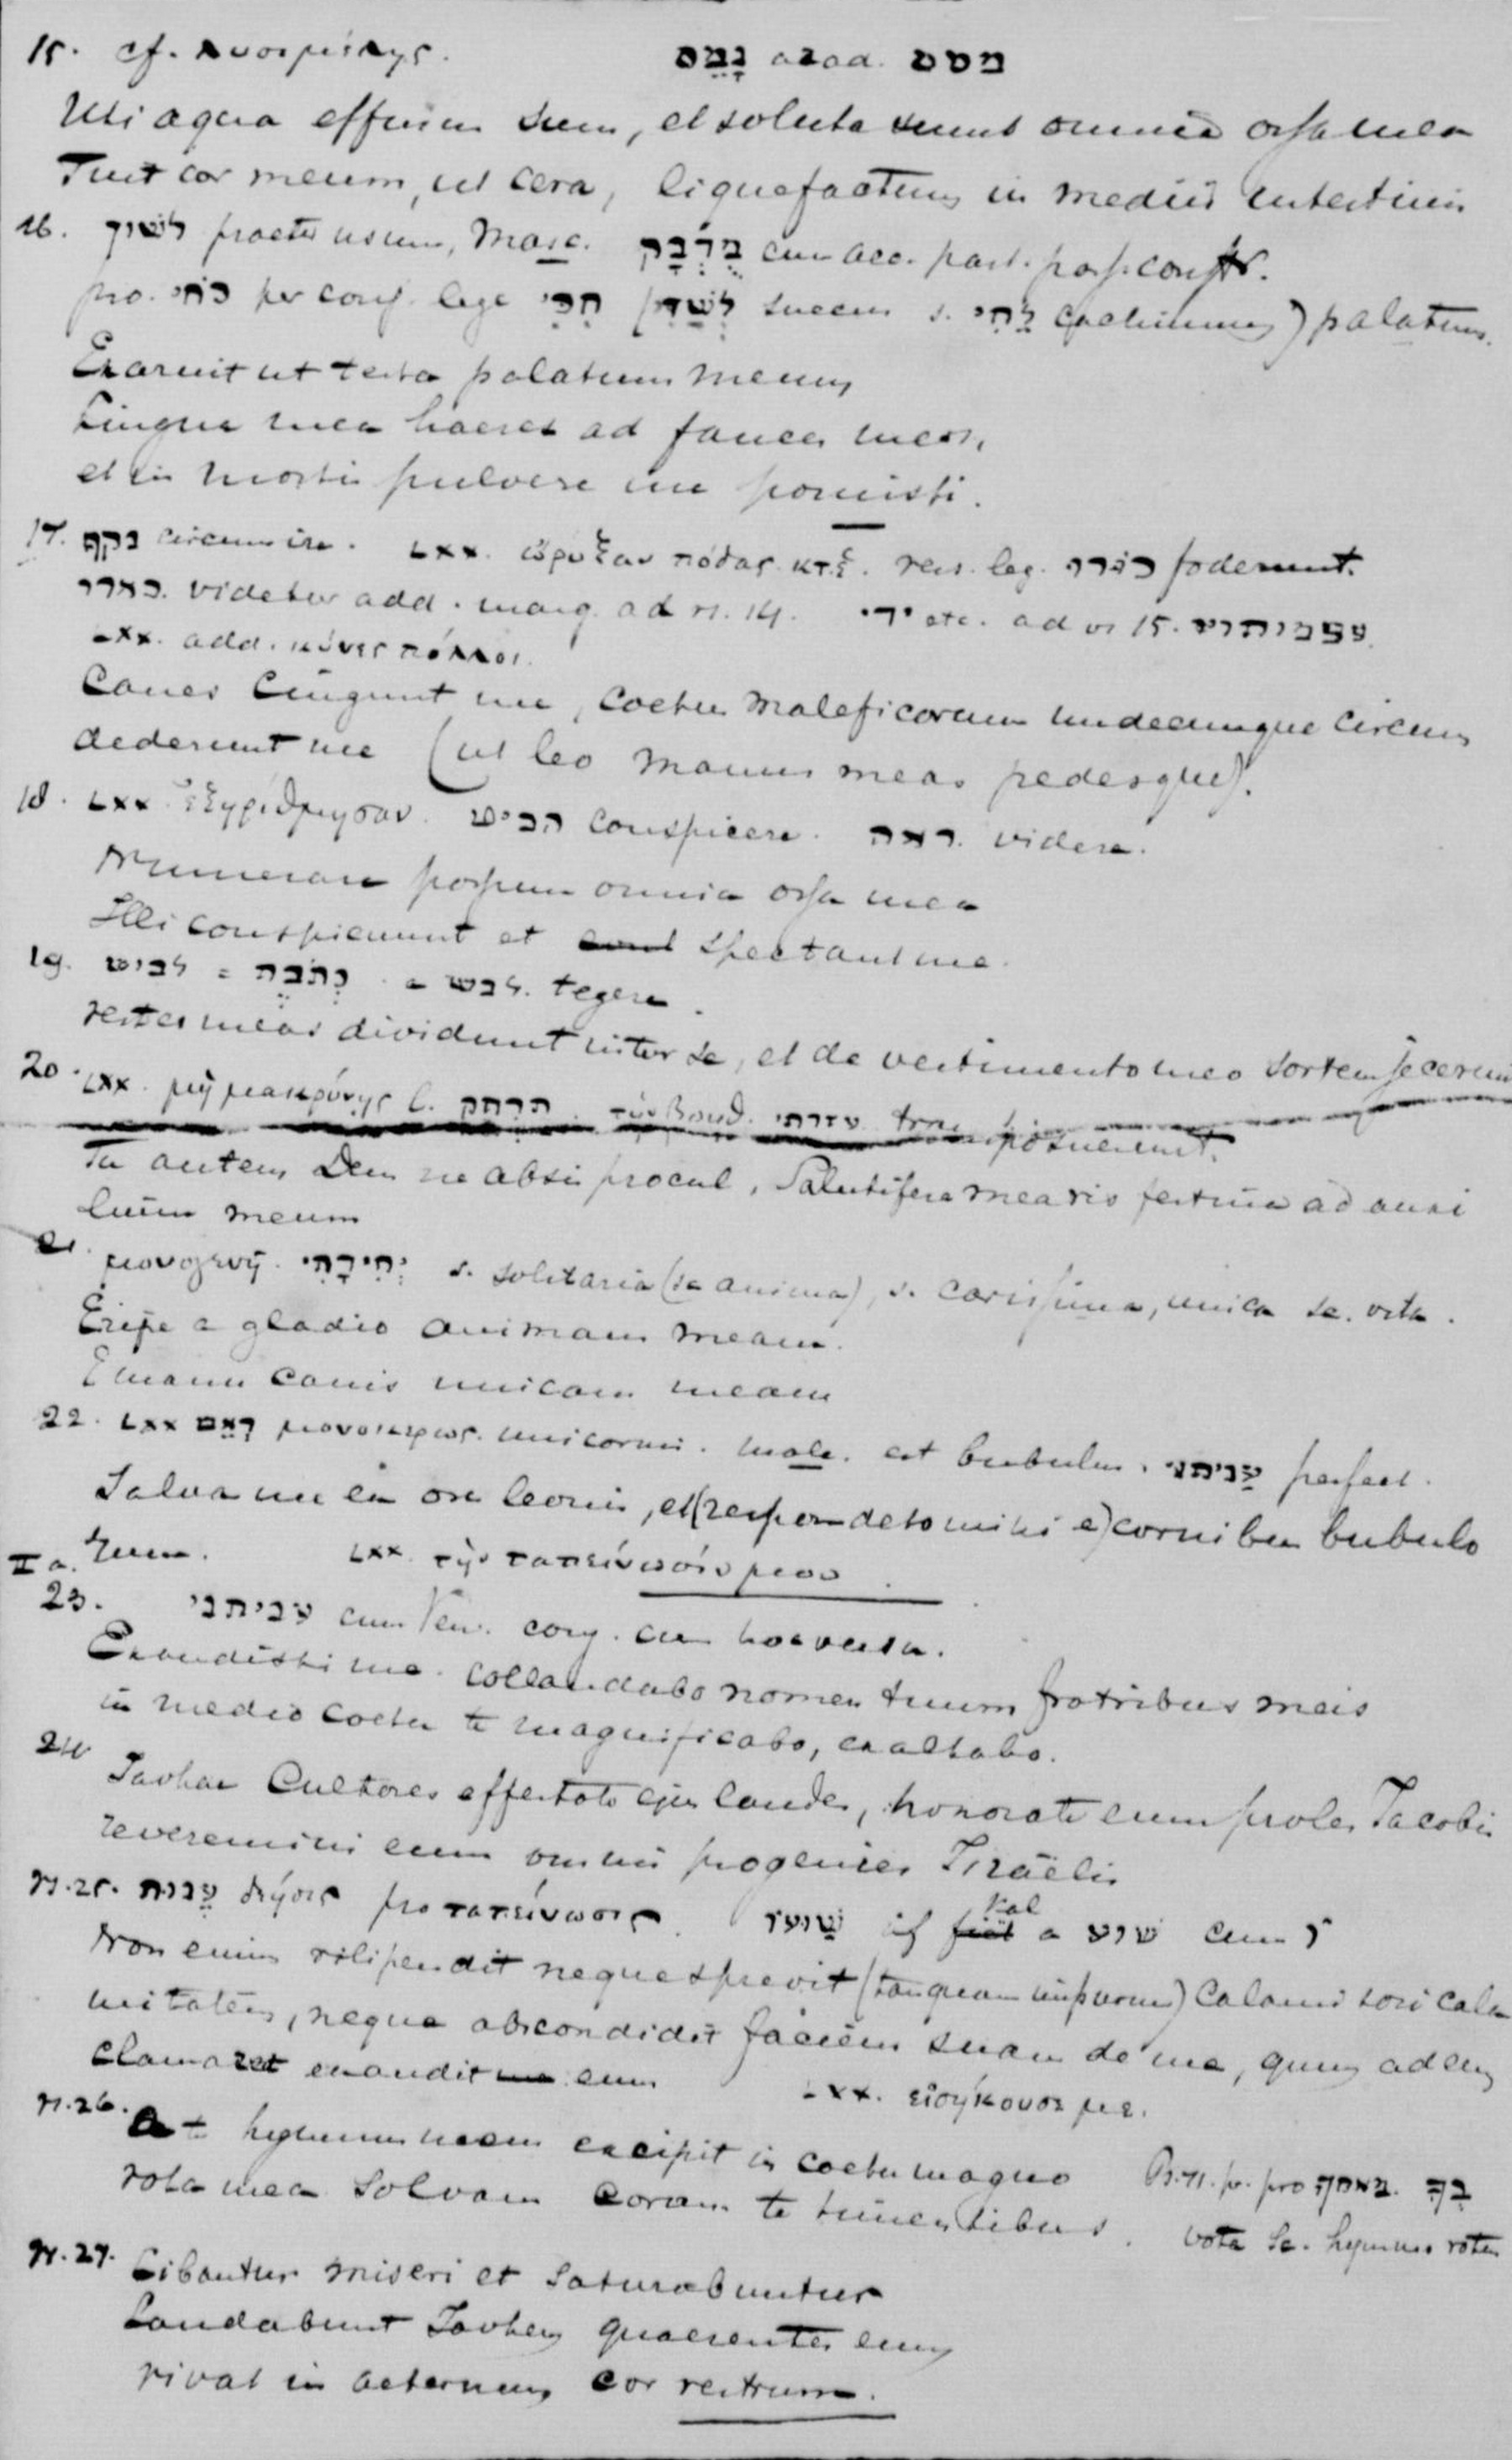 15. cf. נָמֵס מסס
Uti aqua effusus sum, et soluta sunt omnia ossa mea
Fuit cor meum, ut cera, liquefactum in mediis intestinis
16. לשון praeter usum, masc. מֻדְבָּק cum acc. part. pass. constr.
pro כחי per conj. lege חִכִּי (לְשַׁדִּי succus s. לֶחִי) palatum.
Exaruit ut testa palatum meum
Lingua mea haeret ad fauces meas,
et in mortis pulvere me posuisti.
17. נקף circumire. LXX. ὤρυξαν πόδας κτἑ. vers. leg. כארו foderunt.
כארי videtur add. marg. ad vs. 14. ידי etc. ad vs 15. עצמותי
LXX. add. κύνες πόλλοι.
Canes cingunt me, coetus maleficorum undecunque circum
dederunt me (ut leo manus meas pedesque).
18. LXX ἐξηρίθμησαν. הביט conspicere. ראה videre.
Numerare possum omnia ossa mea
Illi conspiciunt et spectant me.
19. לבוש = כְּתֹנֶת a לבש tegere.
Vestes meas dividunt inter se, et de vestimento meo sortem jecerunt
20. LXX. μὴ μακρύνῃς תרחק. עזרתי
Tu autem Deus ne absis procul, Salutifera mea vis festina ad auxi
lium meum
21. μονογενῆ. יְחִידָתִי s. solitaria (sc anima), s. carissima, unica sc. vita.
Eripe a gladio animam meam.
E manu canis unicam meam
22. LXX רְאֵם μονοκερως. unicornis. male. est bubulus. עֲנִיתָנִי perfect.
Salva me ex ore leonis, et (respondeto mihi e) cornibus bubulo
rum. LXX. τὴν ταπείνωσίν μου.
II a.
23. עניתני cum Ven. conj. cum hoc versu.
Exaudisti me. Collaudabo nomen tuum fratribus meis
in medio coetu te magnificabo, exaltabo.
24 Javhae Cultores effertote ejus laudes, honorate eum proles Jacobi
reveremini eum omnis progenies Israëlis
vs. 25. עֱנוּת δέησις pro ταπείνωσις. שַׁוְּעוֹ inf Kal a שוע cum ו
Non enim vilipendit neque sprevit (tanquam impurum) Calamitosi cala
mitatem, neque abscondidit faciem suam de me, quum ad eum
clamaret exaudit eum LXX. εἰσήκουσε με.
vs. 26. A te hymnus meus excipit in coetu magno Ps. 71. pro מאתך. בְּךָ
vota mea solvam coram te timentibus. vota sc. hymnus
vs. 27. Cibantur miseri et saturabuntur
Laudabunt Javhen quaerentes eum
vivat in aeternum cor vestrum.